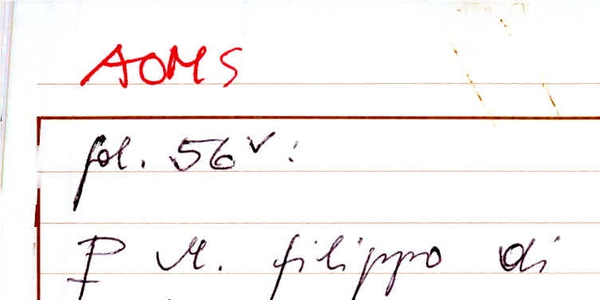 AOMS
fol. 56v:
P M. filippo di